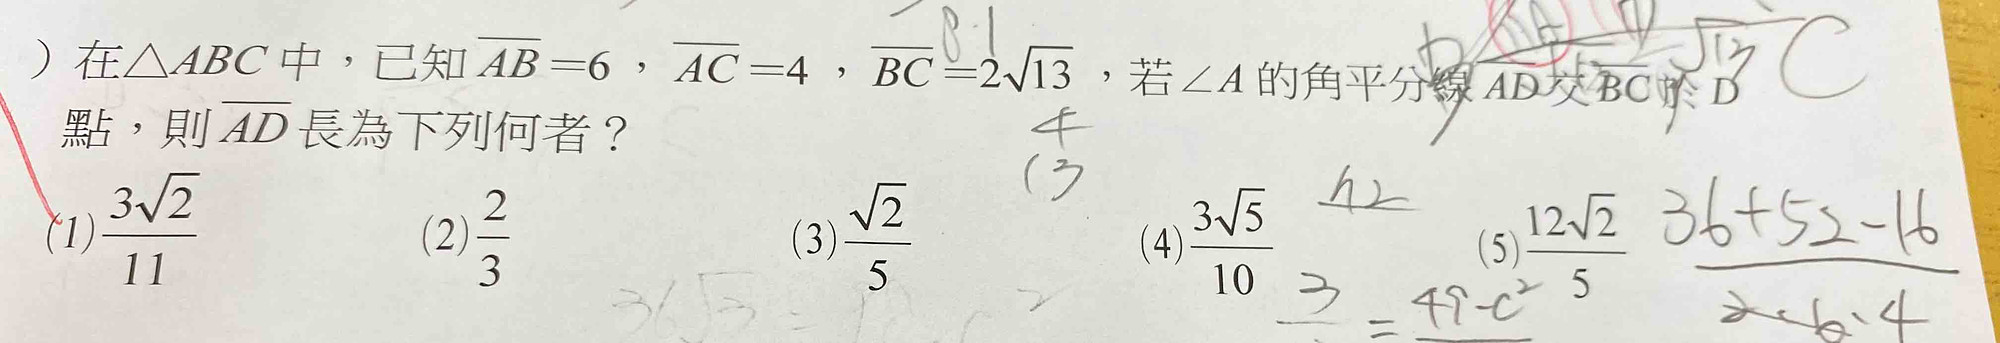 ）在△ABC 中，已知 \overline{AB}=6，\overline{AC}=4，\overline{BC}=2√13，若∠A 的角平分線 \overline{AD} 交 \overline{BC} 於 D
點，則 \overline{AD} 長為下列何者？
(1) 3√2/11 (2) 2/3 (3) √2/5 (4) 3√5/10 (5) 12√2/5
8.1
√13 C
4
13
36+52-16
2·6·4
3 = 49-c²